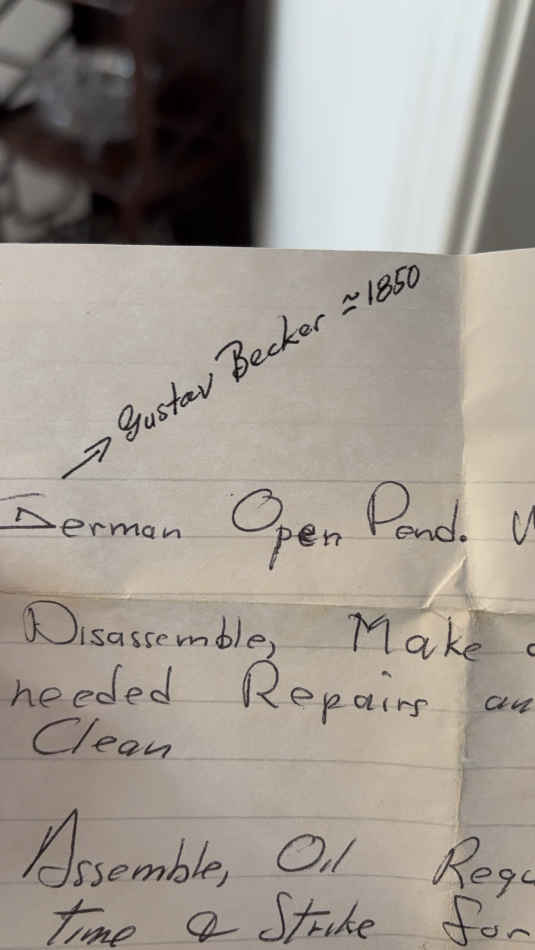 → Gustav Becker ≃1850
German Open Pend.
Disassemble, Make
needed Repairs
Clean
Assemble, Oil
Time & Strike for